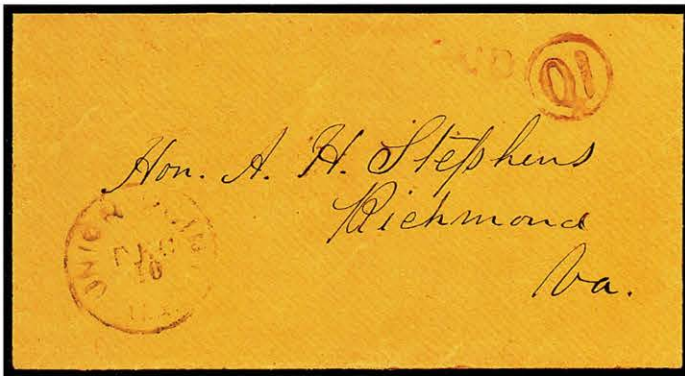 10
Hon. A. H. Stephens
Richmond
Va.
UNION
10